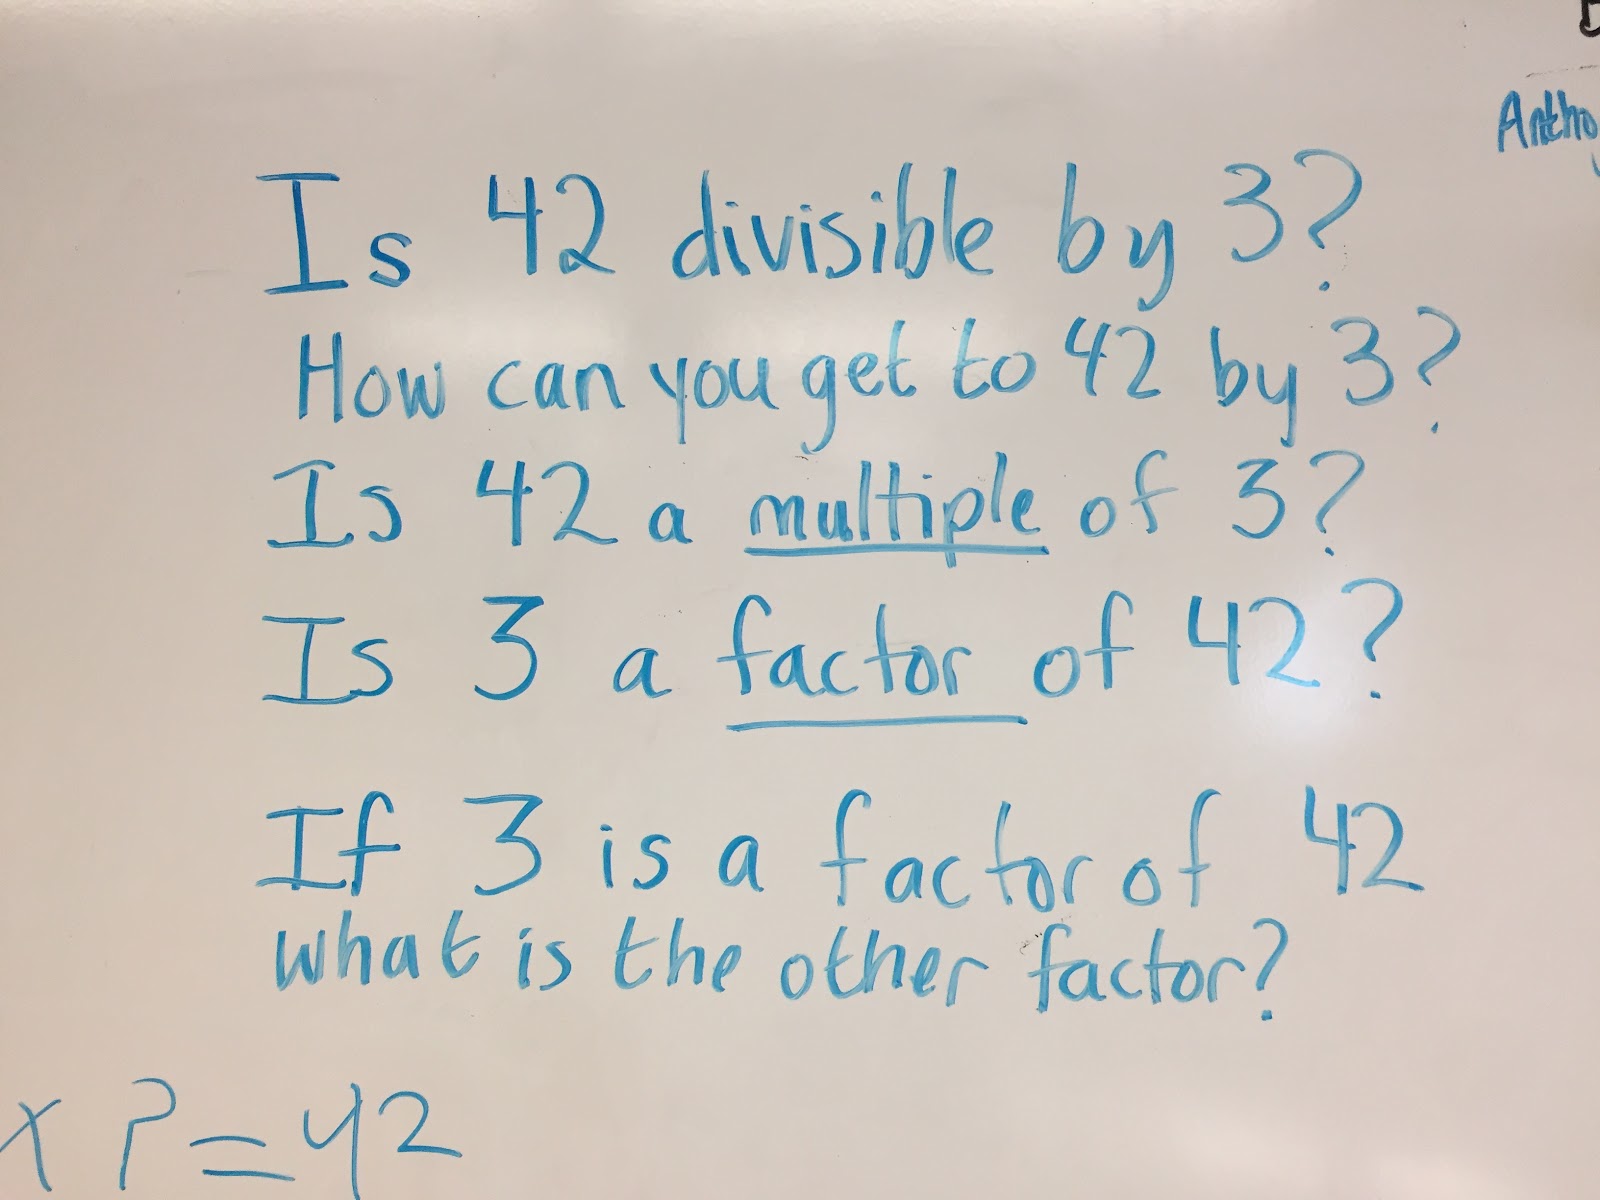 Is 42 divisible by 3?
How can you get to 42 by 3?
Is 42 a multiple of 3?
Is 3 a factor of 42?
If 3 is a factor of 42
what is the other factor?
x ? = 42